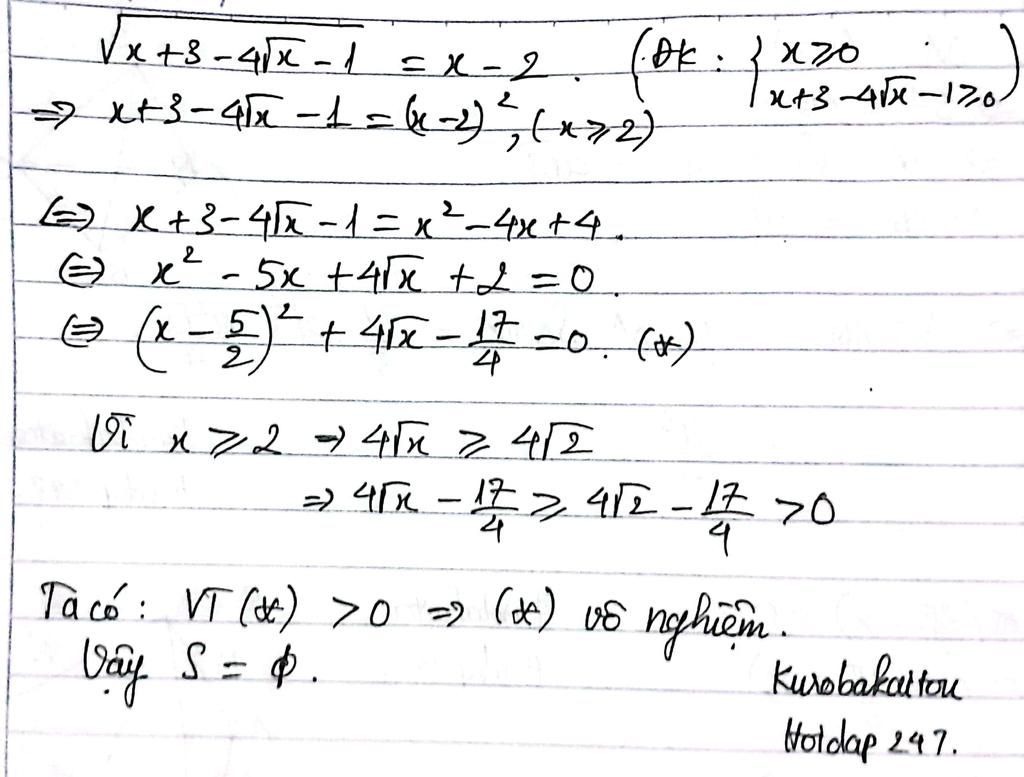 √(x+3-4√x-1) = x-2. (ĐK: { x≥0
x+3-4√x-1≥0)
⇒ x+3-4√x-1 = (x-2)², (x≥2)
⇔ x+3-4√x-1 = x²-4x+4.
⇔ x² - 5x + 4√x + 2 = 0.
⇔ (x - 5/2)² + 4√x - 17/4 = 0. (*)
Vì x ≥ 2 ⇒ 4√x ≥ 4√2
⇒ 4√x - 17/4 ≥ 4√2 - 17/4 > 0
Ta có: VT (*) > 0 ⇒ (*) vô nghiệm.
Vậy S = ϕ.
Kurobakaitou
Hoidap 247.